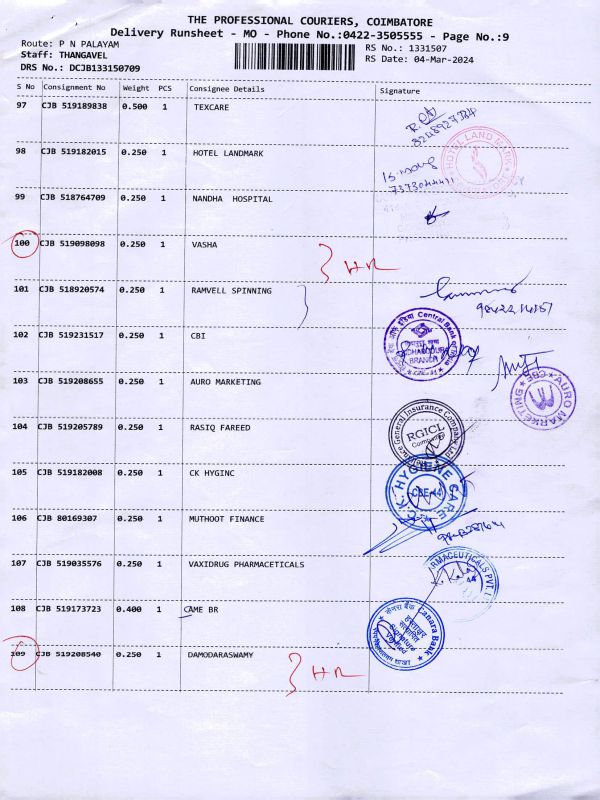 THE PROFESSIONAL COURIERS, COIMBATORE
Delivery Runsheet - MO - Phone No.:0422-3505555 - Page No.:9
Route: P N PALAYAM
RS No.: 1331507
Staff: THANGAVEL
RS Date: 04-Mar-2024
DRS No.: DCJB133150709
S No Consignment No Weight PCS Consignee Details Signature
97 CJB 519189838 0.500 1 TEXCARE
98 CJB 519182015 0.250 1 HOTEL LANDMARK
HOTEL LAND MARK
99 CJB 518764709 0.250 1 NANDHA HOSPITAL
100 CJB 519098098 0.250 1 VASHA
101 CJB 518920574 0.250 1 RAMVELL SPINNING
102 CJB 519231517 0.250 1 CBI
Central Bank
BRANCH
103 CJB 519208655 0.250 1 AURO MARKETING
AURO MARKETING CBE
104 CJB 519205789 0.250 1 RASIQ FAREED
General Insurance Company Ltd
RGICL
105 CJB 519182008 0.250 1 CK HYGINC
C.K. HYGIENE CARE
CBE-44
106 CJB 80169307 0.250 1 MUTHOOT FINANCE
107 CJB 519035576 0.250 1 VAXIDRUG PHARMACETICALS
ARMACEUTICALS PVT.
44
108 CJB 519173723 0.400 1 AME BR
Canara Bank
Signature
Verified
109 CJB 519208540 0.250 1 DAMODARASWAMY